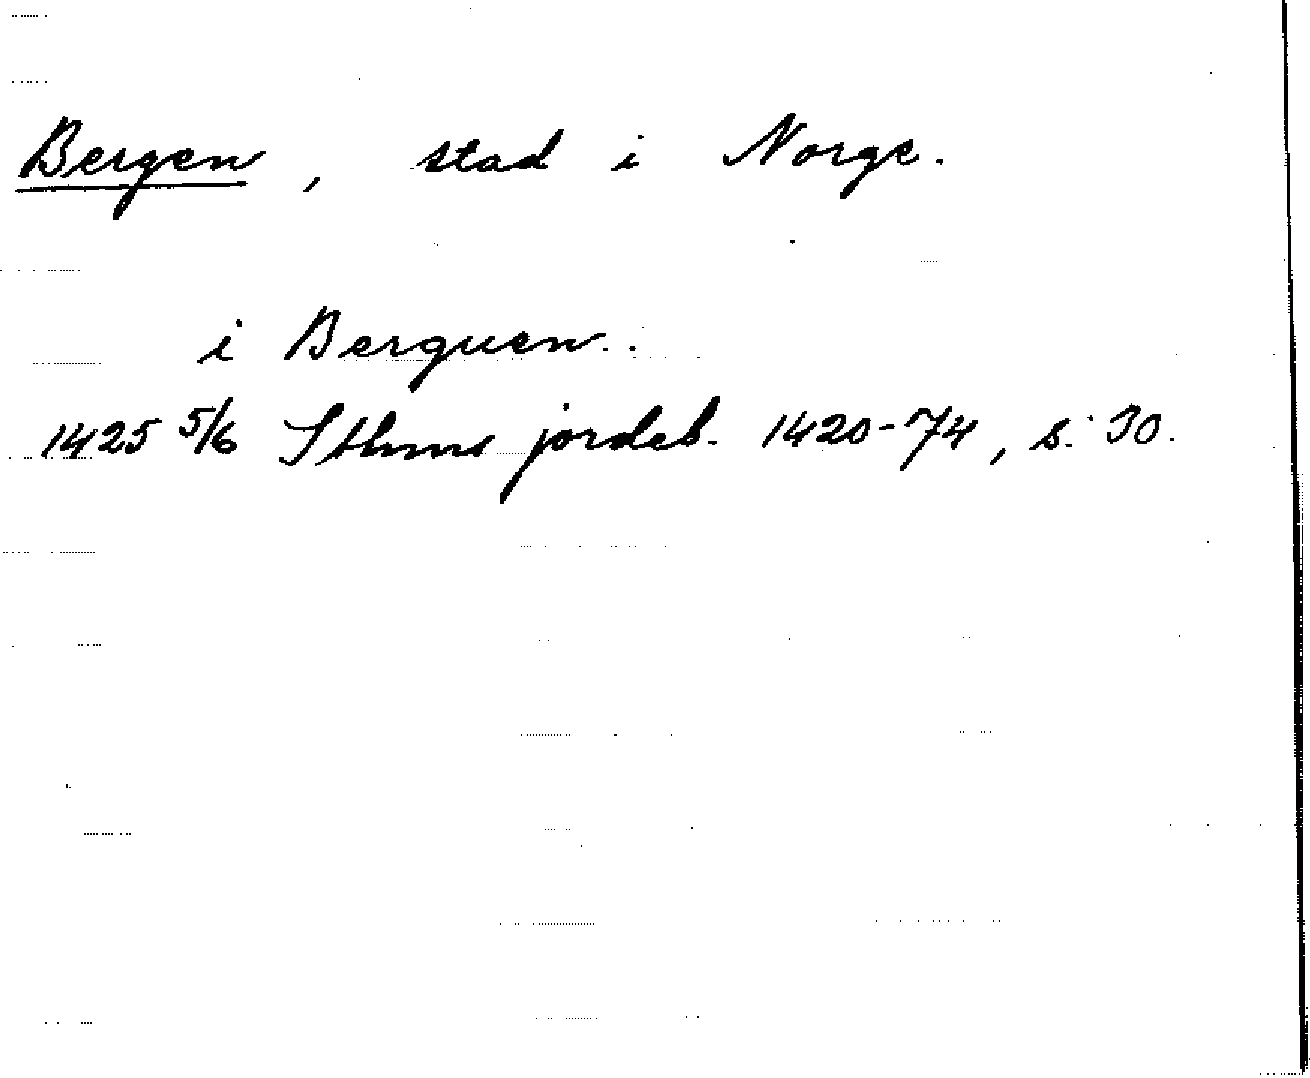 Bergen, stad i Norge.
i Berguen.
1425 5/6 Sthms jordeb. 1420-74, s. 30.